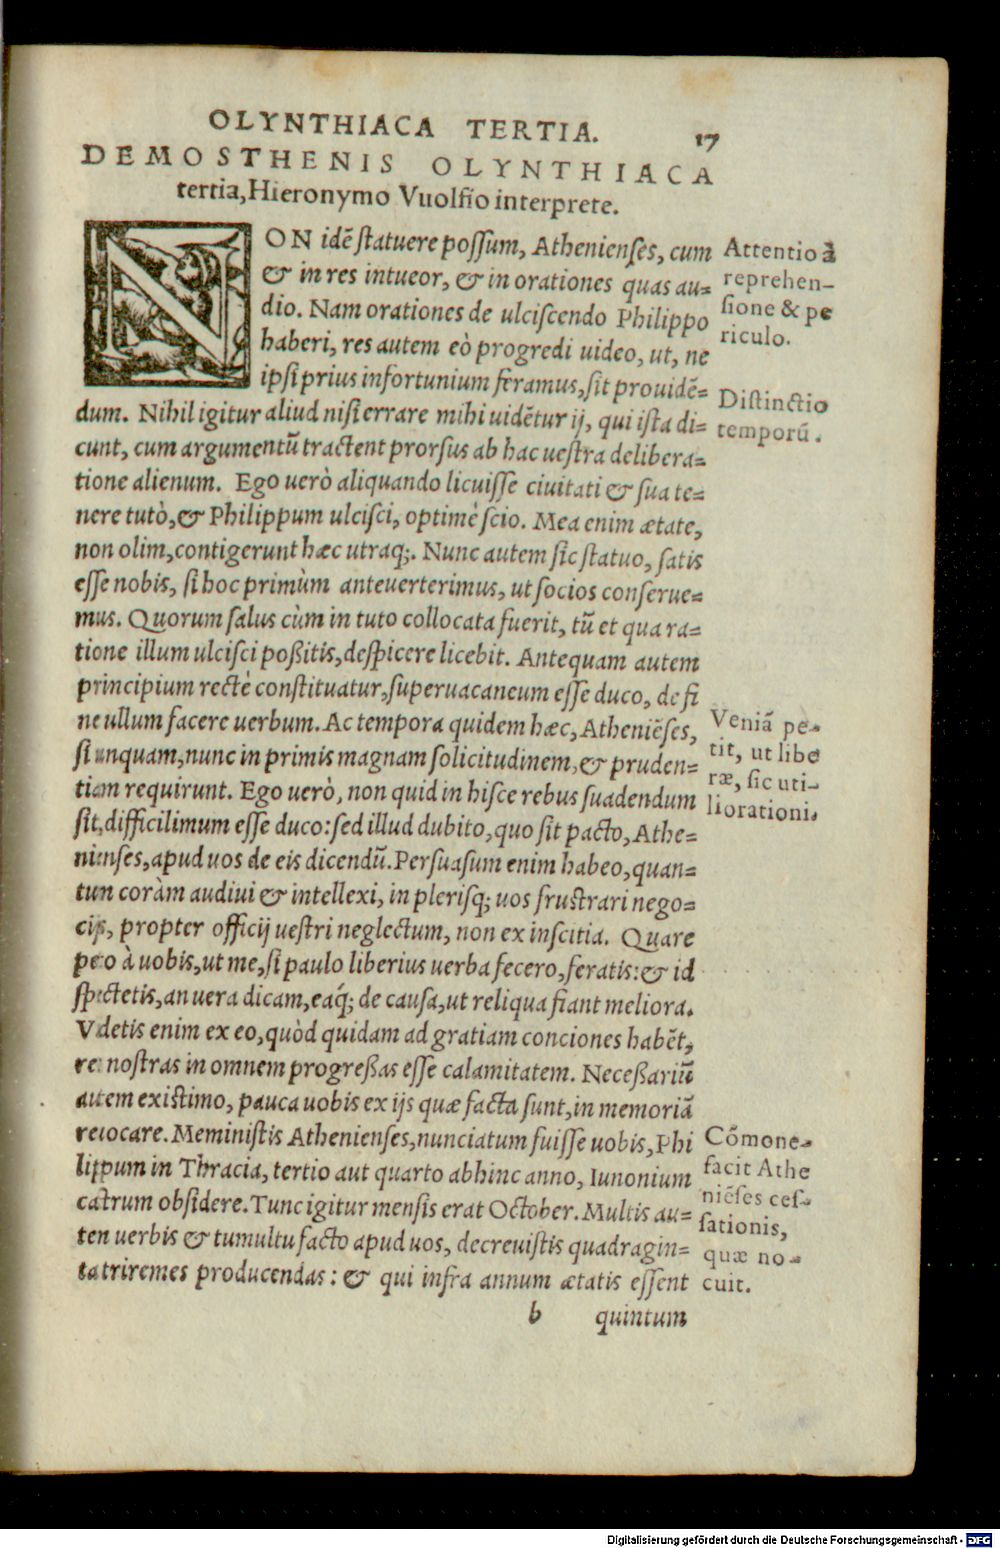 OLYNTHIACA TERTIA. 17
DEMOSTHENIS OLYNTHIACA
tertia, Hieronymo Vuolfio interprete.
NON idē statuere possum, Athenienses, cum
& in res intueor, & in orationes quas au=
dio. Nam orationes de ulciscendo Philippo
haberi, res autem eò progredi uideo, ut, ne
ipsi prius infortunium feramus, sit prouidē=
dum. Nihil igitur aliud nisi errare mihi uidētur ij, qui ista di=
cunt, cum argumentū tractent prorsus ab hac uestra delibera=
tione alienum. Ego uerò aliquando licuisse ciuitati & sua te=
nere tutò, & Philippum ulcisci, optimè scio. Mea enim ætate,
non olim, contigerunt hæc utraq;. Nunc autem sic statuo, satis
esse nobis, si hoc primùm anteuerterimus, ut socios conserue=
mus. Quorum salus cùm in tuto collocata fuerit, tū et qua ra=
tione illum ulcisci poßitis, despicere licebit. Antequam autem
principium rectè constituatur, superuacaneum esse duco, de fi
ne ullum facere uerbum. Ac tempora quidem hæc, Atheniēses,
si unquam, nunc in primis magnam solicitudinem, & pruden=
tiam requirunt. Ego uerò, non quid in hisce rebus suadendum
sit, difficilimum esse duco: sed illud dubito, quo sit pacto, Athe=
nienses, apud uos de eis dicendū. Persuasum enim habeo, quan=
tum coràm audiui & intellexi, in plerisq; uos frustrari nego=
cijs, propter officij uestri neglectum, non ex inscitia. Quare
peto à uobis, ut me, si paulo liberius uerba fecero, feratis: & id
spectetis, an uera dicam, eaq́; de causa, ut reliqua fiant meliora.
Videtis enim ex eo, quòd quidam ad gratiam conciones habēt,
res nostras in omnem progreßas esse calamitatem. Neceßariū
autem existimo, pauca uobis ex ijs quæ facta sunt, in memoriā
reuocare. Meministis Athenienses, nunciatum fuisse uobis, Phi
lippum in Thracia, tertio aut quarto abhinc anno, Iunonium
castrum obsidere. Tunc igitur mensis erat October. Multis au=
tem uerbis & tumultu facto apud uos, decreuistis quadragin=
ta triremes producendas: & qui infra annum ætatis essent
b quintum
Attentio à
reprehen-
sione & pe
riculo.
Distinctio
temporū.
Veniā pe-
tit, ut libe
ræ, sic uti-
li orationi.
Cōmone-
facit Athe
niēses ces-
sationis,
quæ no-
cuit.
Digitalisierung gefördert durch die Deutsche Forschungsgemeinschaft - DFG